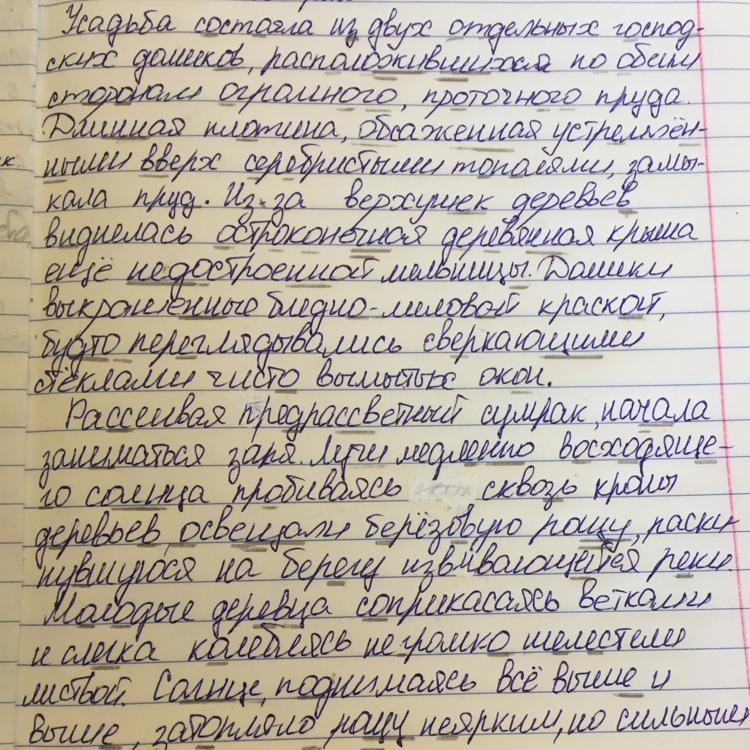 Усадьба состаяла из двух отдельных господ-
ских домиков, расположившихся по обеим
сторонам огромного, проточного пруда.
Длинная плотина, обсаженная устремлён-
к
ными вверх серебристыми тополями, замы-
кала пруд. Из-за верхушек деревьев
виднелась остроконечная деревянная крыша
ещё недостроенной мельницы. Домики
выкрашенные бледно-лиловой краской,
будто переглядывались сверкающими
стёклами чисто вымытых окон.
Рассеивая предрассветный сумрак, начала
заниматься заря. Лучи медленно восходяще-
го солнца пробиваясь сквозь кроны
деревьев, освещали берёзовую рощу, раски
нувшуюся на берегу извивающейся реки.
Молодые деревца соприкасаясь ветками
и слегка колеблясь негромко шелестели
листвой. Солнце, поднимаясь всё выше и
выше, затопляло рощу неярким, но сильным